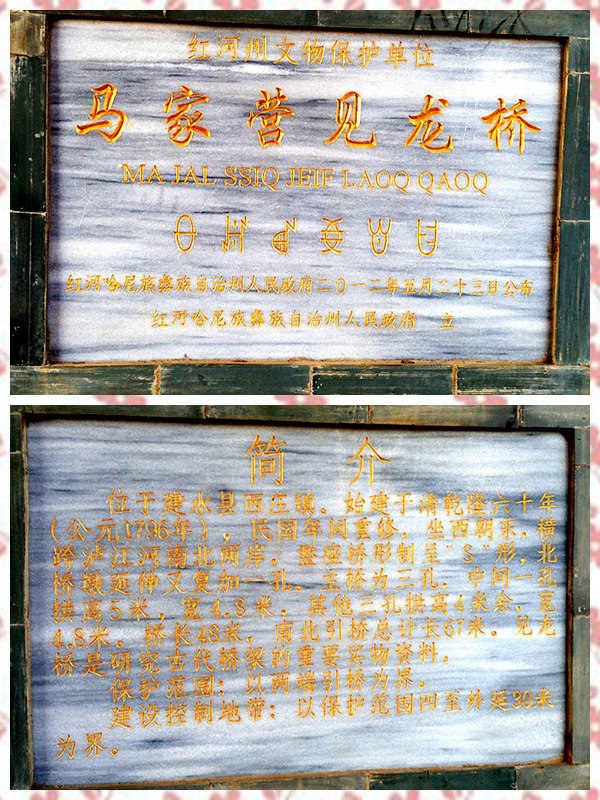 红河州文物保护单位
马家营见龙桥
MA JAL SSIQ JEIF LAOQ QAOQ
红河哈尼族彝族自治州人民政府二〇一二年五月二十三日公布
红河哈尼族彝族自治州人民政府 立
简 介
位于建水县西庄镇。始建于清乾隆六十年
（公元1796年），民国年间重修，坐西朝东，横
跨泸江河南北两岸，整座桥形制呈“S”形，北
桥墩延伸又复加一孔。主桥为三孔，中间一孔
拱高5米，宽4.8米。其他三孔拱高4米余，宽
4.8米。桥长48米，南北引桥总计长67米。见龙
桥是研究古代桥梁的重要实物资料。
保护范围：以两端引桥为界。
建设控制地带：以保护范围四至外延30米
为界。